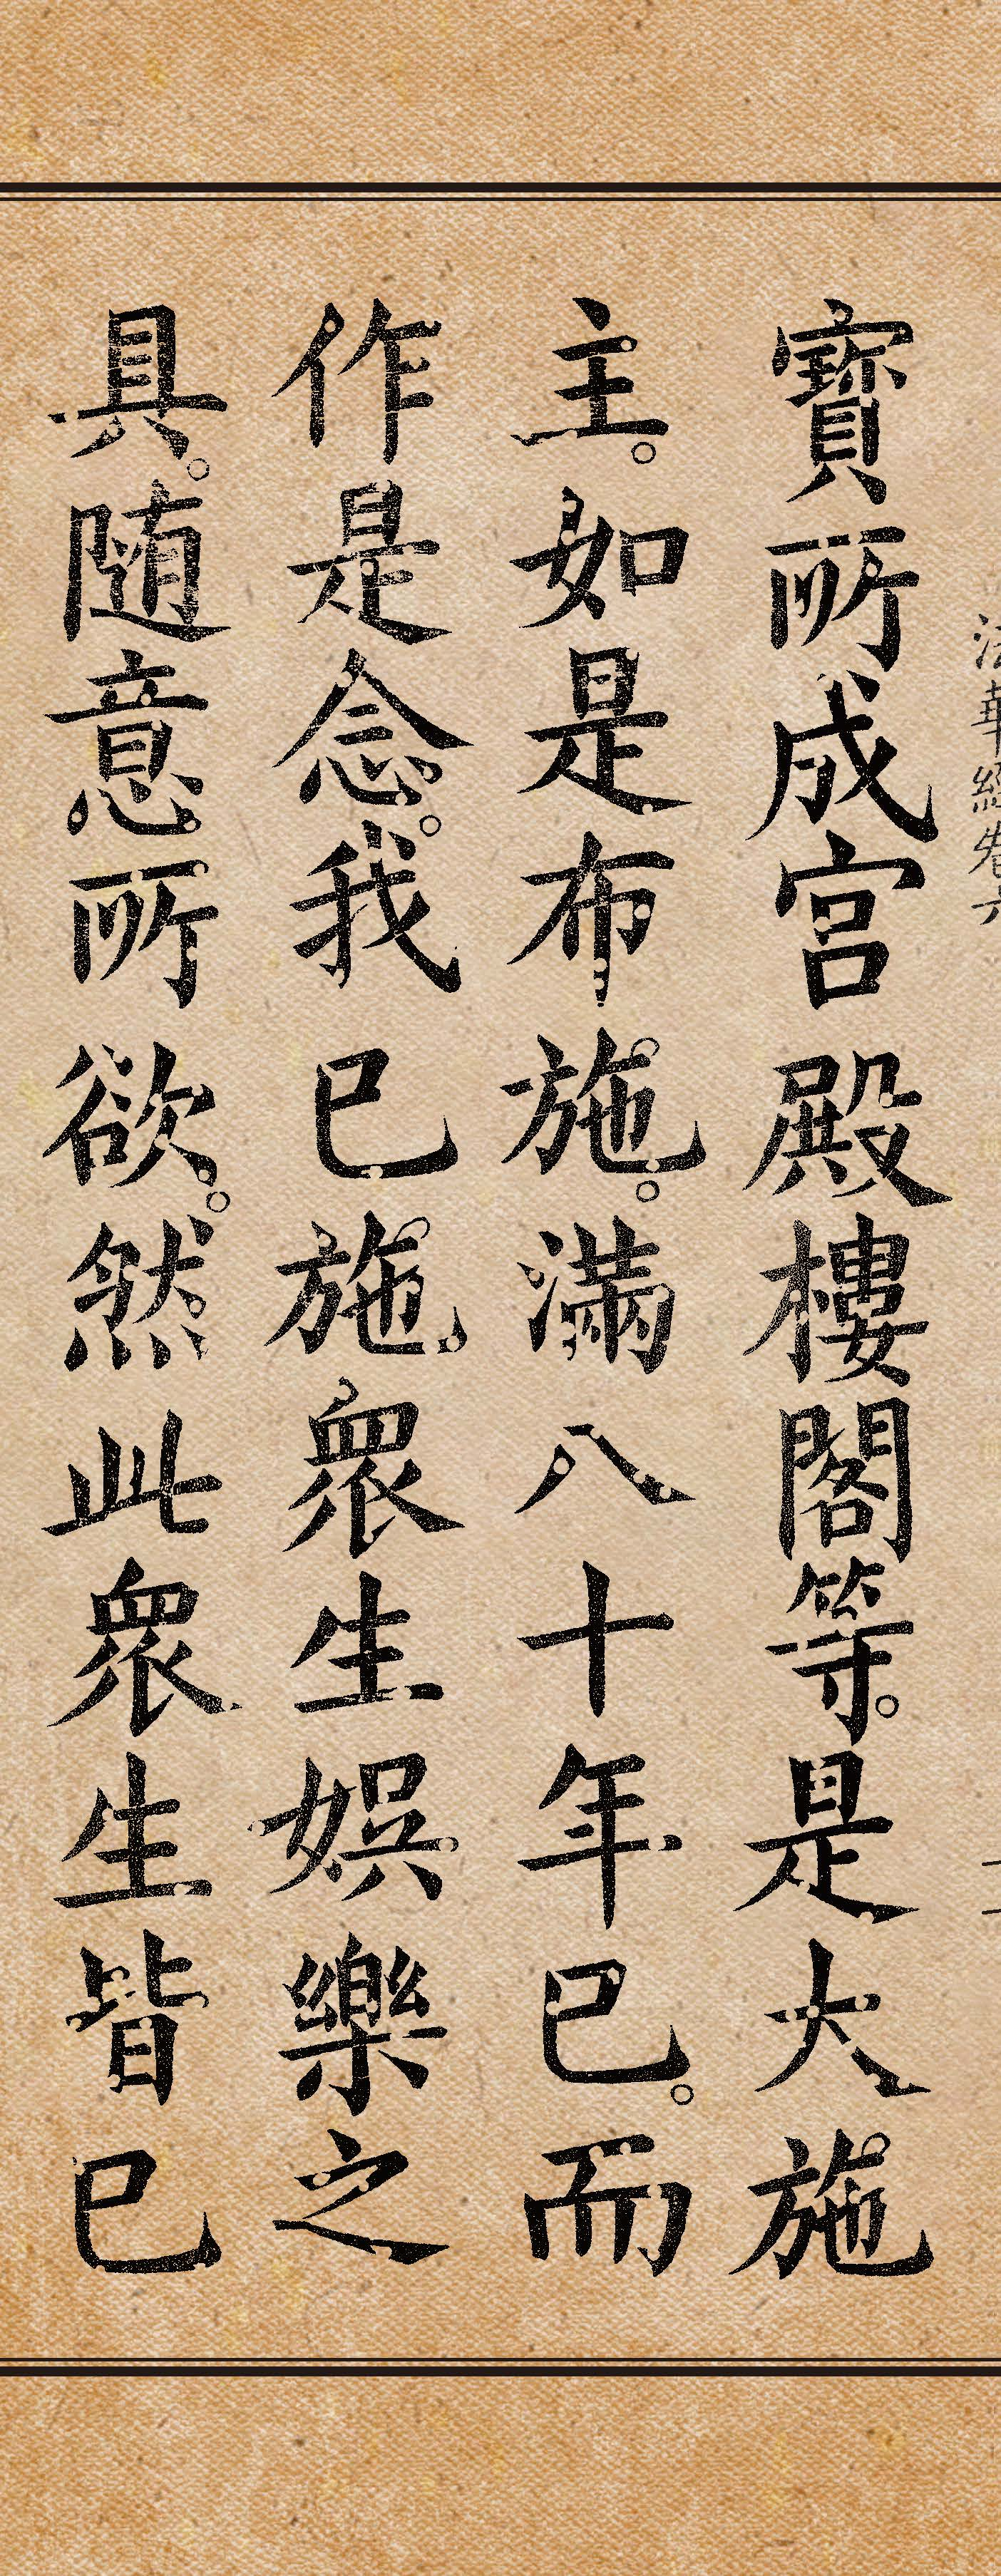 法華經卷六
寶所成宮殿樓閣等。是大施
主。如是布施。滿八十年已。而
作是念。我已施衆生娛樂之
具。随意所欲。然此衆生皆已